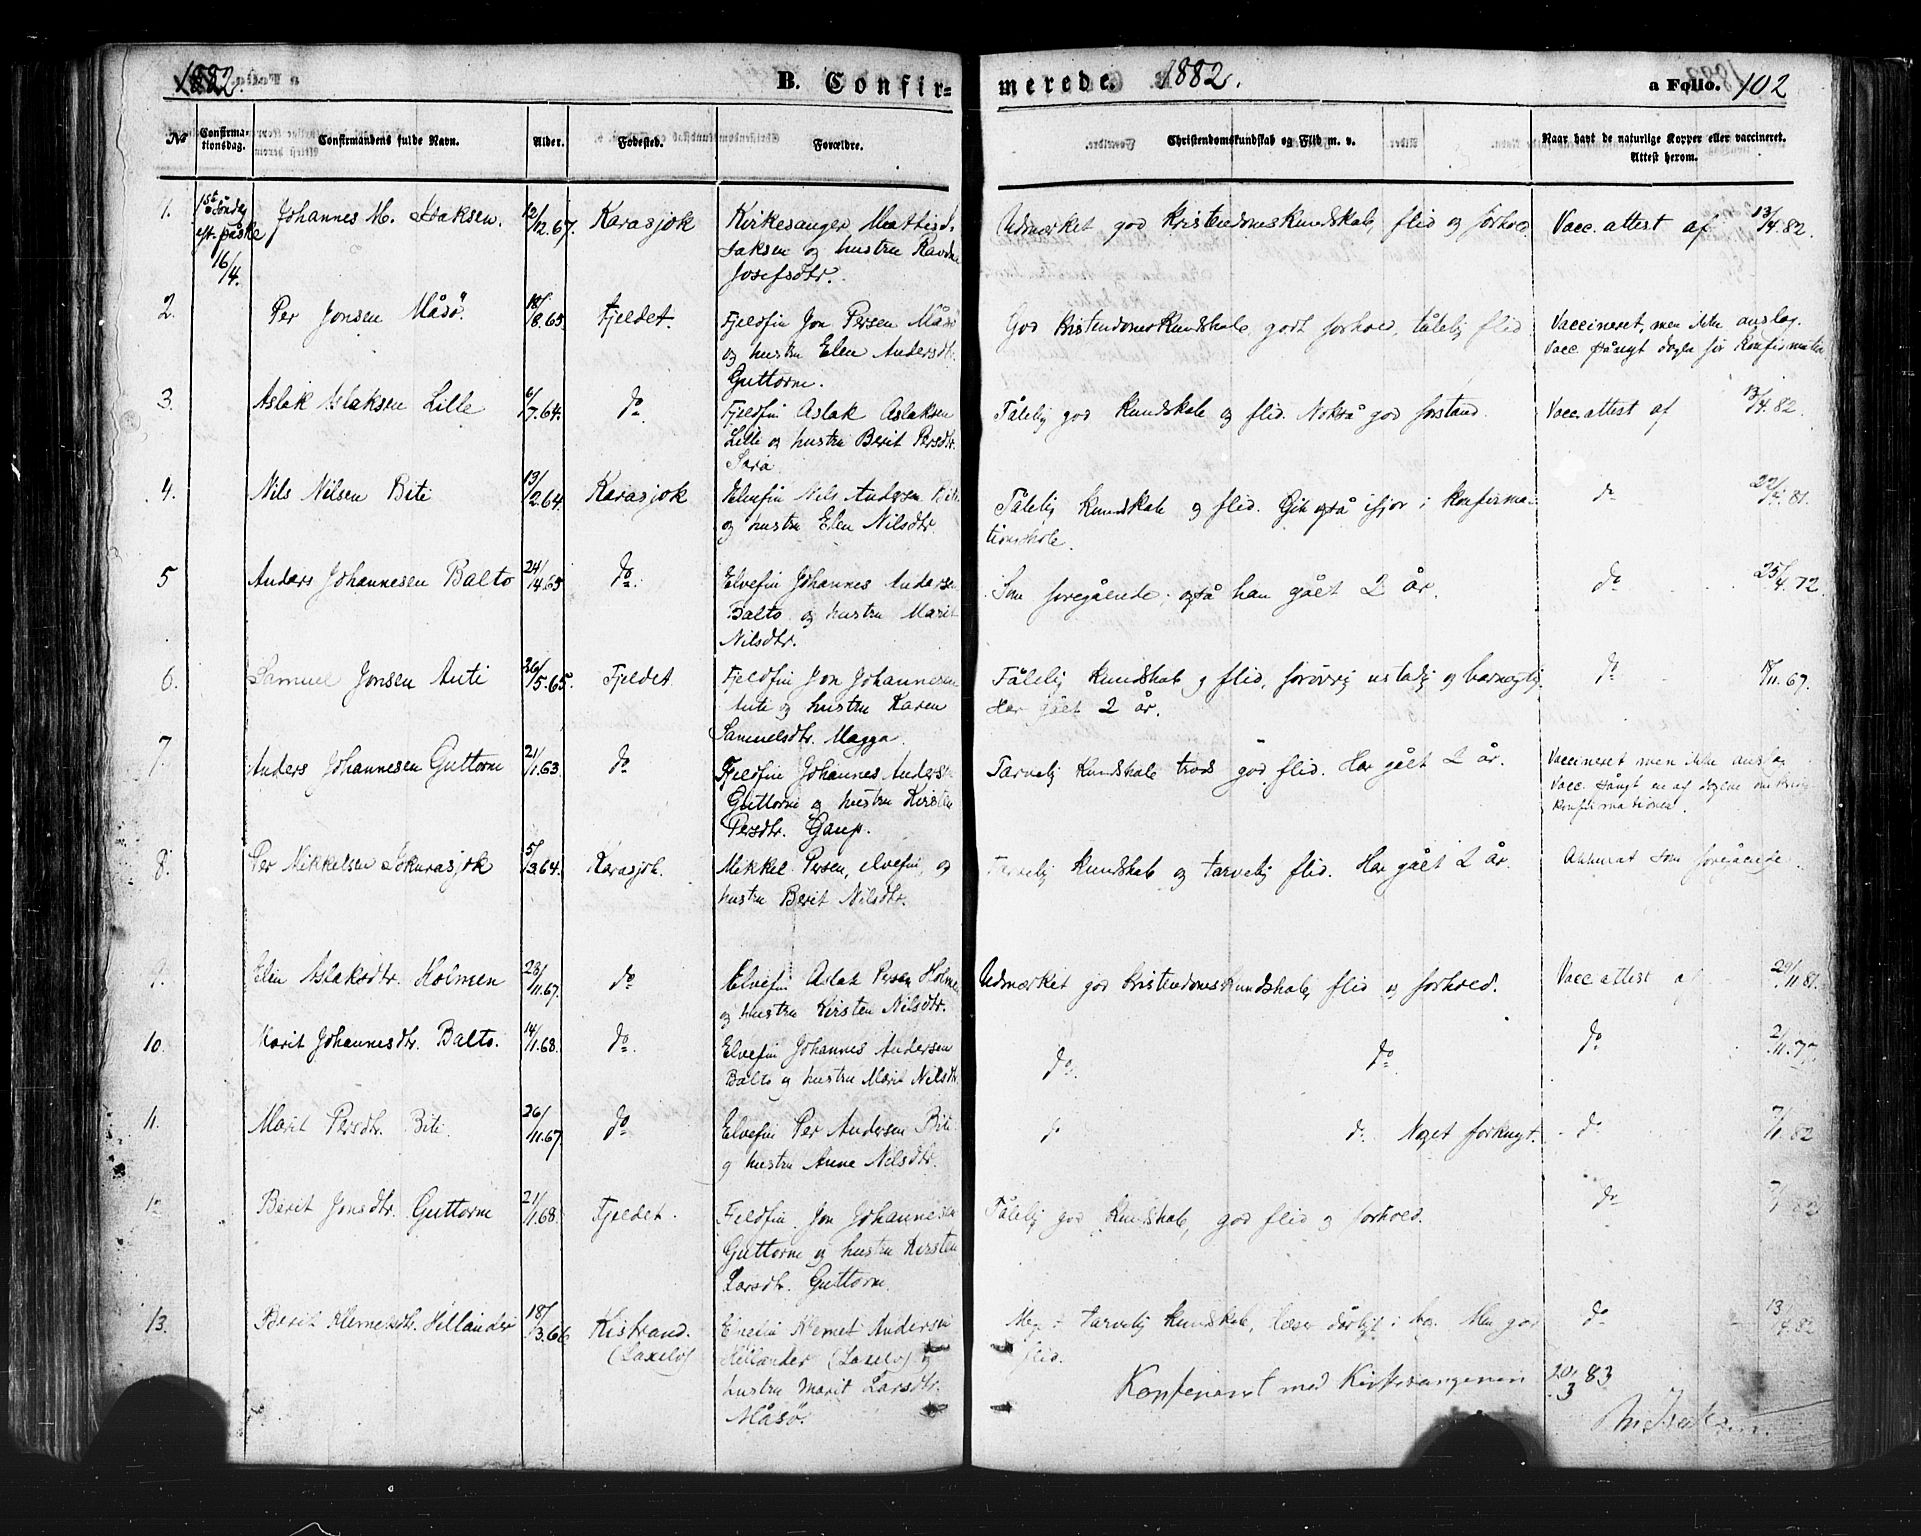 1882. B. Confirmerede. 1882. a Folio. 102
No Confirmationsdag. Confirmandens fulde Navn. Alder. Fødested. Forældre. Christendomskundskab og Flid m. v. Naar havt de naturlige Kopper eller vaccineret. Attest herom.
1. 1st Søndag Johannes M. Isaksen. 12/12.67. Karasjok Kirkesanger Mathis Udmærket god Kristendomskundskab, flid og forhold Vacc. attest af 13/4.82.
eft. påske Isaksen og hustru Ravdna
16/4. Josefsdtr.
2. Per Jonsen Måsø. 18/8.65. Fjeldet. Fjeldfin Jon Persen Måsø God Kristendomskundskab, godt forhold, tålelig flid Vaccineret, men ikke anslag.
og hustru Elen Andersdtr. Vacc. påny dagen før Konfirmation
Guttorm.
3. Aslak Aslaksen Lille 6/7.64. do Fjeldfin Aslak Aslaksen Tålelig god Kundskab og flid. Nokså god forstand. Vacc. attest af 13/4.82.
Lille og hustru Berit Persdtr.
Sara
4. Nils Nilsen Biti 13/2.64. Karasjok Elvefin Nils Andersen Biti Tålelig Kundskab og flid. Gik også ifjor i Konfirma- do 81.
og hustru Elen Nilsdtr. tionsskole.
5 Anders Johannesen Balto 24/4.65 do. Elvefin Johannes Andersen Som foregående; også han gået 2 år. do 25/4.72
Balto og hustru Marit
Nilsdtr.
6. Samuel Jonsen Anti 26/5.65. Fjeldet. Fjeldfin Jon Johannesen Tålelig Kundskab og flid, forøvrig ustadig og barnagtig. do 18/11.67.
Anti og hustru Karen Har gået 2 år.
Samuelsdtr. Magga.
7. Anders Johannesen Guttorm 21/1.63. do Fjeldfin Johannes Anders. Tarvelig Kundskab trods god flid. Har gået 2 år. Vaccineret men ikke anslag
Guttorm og hustru Kirsten Vacc. påny en af dagene omkring
Persdtr. Gaup. Konfirmationen.
8. Per Mikkelsen Jokurasjok 5/3.64. Karasjok. Mikkel Persen, elvefin, og Tarvelig Kundskab og tarvelig flid. Har gået 2 år. Akkurat som foregående.
hustru Berit Nilsdtr.
9. Elen Aslaksdtr. Holmen 28/11.67. do Elvefin Aslak Persen Holmen Udmærket god Kristendomskundskab, flid og forhold. Vacc attest af 29/11.81.
og hustru Kirsten Nilsdtr.
10. Marit Johannesdtr. Balto. 14/1.68. do. Elvefin Johannes Andersen do. do do 2/11.77.
Balto og hustru Marit Nilsdtr.
11. Marit Persdtr. Biti. 26/11.67. do Elvefin Per Andersen Biti do do. Noget forknyt. do 7/1.82
og hustru Anne Nilsdtr.
12 Berit Jonsdtr. Guttorm 21/1.68. Fjeldet. Fjeldfin Jon Johannesen Tålelig god Kundskab, god flid og forhold. do 7/1.82
Guttorm og hustru Kirsten
Larsdtr. Guttorm
13. Berit Klemetsdtr. Hellander 18/3.66 Kistrand. Elvefin Klemet Andersen Meget tarvelig Kundskab, læser dårligt i bog. Men god do 13/4.82
(Laxelv) Hellander (Laxelv) og flid.
hustru Marit Larsdtr. Konfereret med Kirkesangeren 20/3 83
Måsø. M. Isaksen.